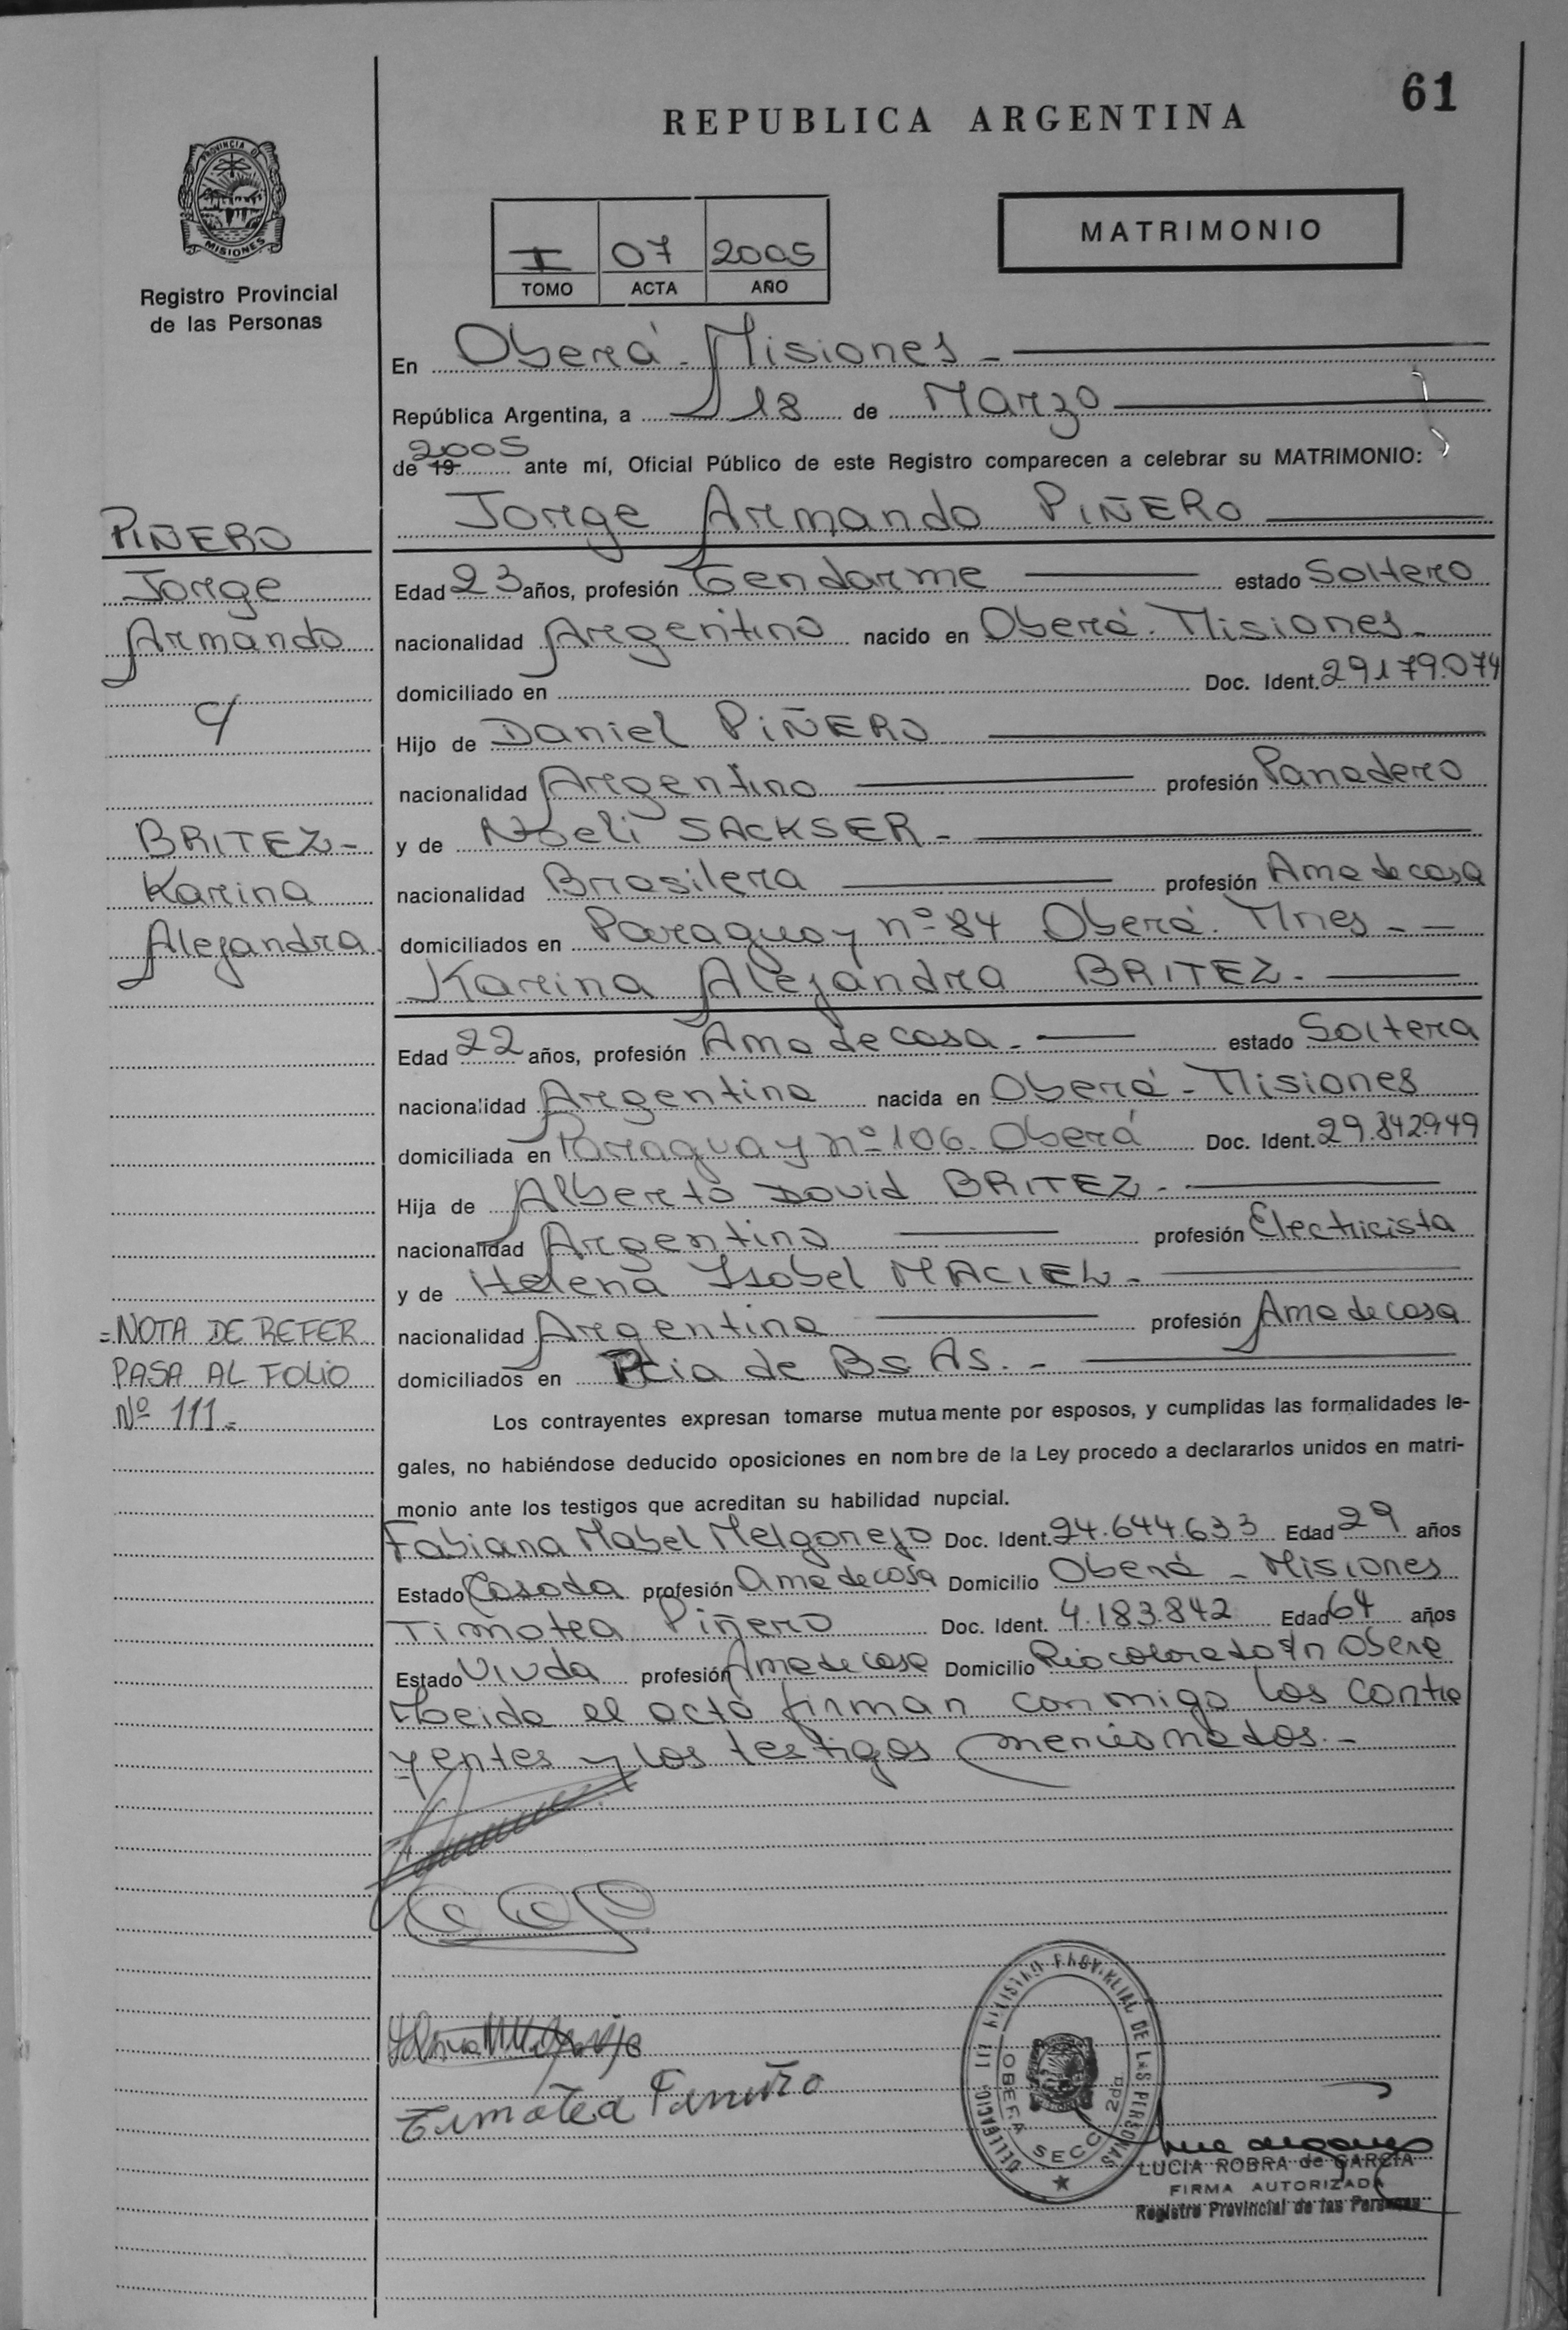 61
REPUBLICA ARGENTINA
PROVINCIA D
MISIONES
Registro Provincial
de las Personas
I 07 2005
TOMO ACTA AÑO
MATRIMONIO
En Oberá - Misiones -
República Argentina, a 18 de Marzo
de 19 2005 ante mí, Oficial Público de este Registro comparecen a celebrar su MATRIMONIO:
Jorge Armando PIÑERO
Edad 23 años, profesión Gendarme estado Soltero
nacionalidad Argentino nacido en Oberá. Misiones.
domiciliado en Doc. Ident. 29179.074
Hijo de Daniel PIÑERO
nacionalidad Argentino profesión Panadero
y de Noeli SACKSER -
nacionalidad Brasilera profesión Ama de casa
domiciliados en Paraguay nº 84 Oberá. Mnes - -
Karina Alejandra BRITEZ -
Edad 22 años, profesión Ama de casa - estado Soltera
nacionalidad Argentina nacida en Oberá - Misiones
domiciliada en Paraguay nº 106. Oberá Doc. Ident. 29.842949
Hija de Alberto David BRITEZ -
nacionalidad Argentino profesión Electricista
y de Helena Isabel MACIEL -
nacionalidad Argentina profesión Ama de casa
domiciliados en Pcia de Bs As. -
Los contrayentes expresan tomarse mutuamente por esposos, y cumplidas las formalidades le-
gales, no habiéndose deducido oposiciones en nombre de la Ley procedo a declararlos unidos en matri-
monio ante los testigos que acreditan su habilidad nupcial.
Fabiana Mabel Melgarejo Doc. Ident. 24.644.633 Edad 29 años
Estado Casada profesión Ama de casa Domicilio Oberá - Misiones
Timotea Piñero Doc. Ident. 4.183.842 Edad 64 años
Estado Viuda profesión Ama de casa Domicilio Rio colorado s/n Obera
Leida el acta firman conmigo los contra
yentes y los testigos mencionados. -
PIÑERO
Jorge
Armando
c/
BRITEZ -
Karina
Alejandra
= NOTA DE REFER
PASA AL FOLIO
Nº 111 =
Timotea
REGISTRO PROVINCIAL DE LAS PERSONAS
DELEGACION
OBERA SECC 2da
LUCIA ROBRA de GARCIA
FIRMA AUTORIZADA
Registro Provincial de las Personas